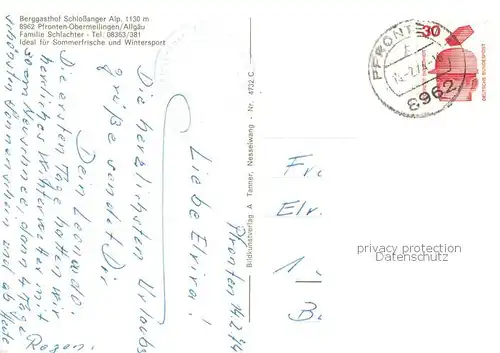 Berggasthof Schloßanger Alp, 1130 m
8962 Pfronten-Obermeilingen/Allgäu
Familie Schlachter - Tel. 08363/381
Ideal für Sommerfrische und Wintersport
Pfronten 14.2.74
Liebe Elvira!
Die herzlichsten Urlaubs
grüße sendet Dir
Dein Leonardo.
Die ersten Tage hatten wir
herrliches Winterwetter mit
Neuschnee, dann 4 Tage
schönsten Sonnenschein und ab Heute
Regen.
Bildkunstverlag A. Tanner, Nesselwang - Nr. 4732 C
PFRONTEN
8962
30
DEUTSCHE BUNDESPOST
Fr
Elr
1
privacy protection
Datenschutz